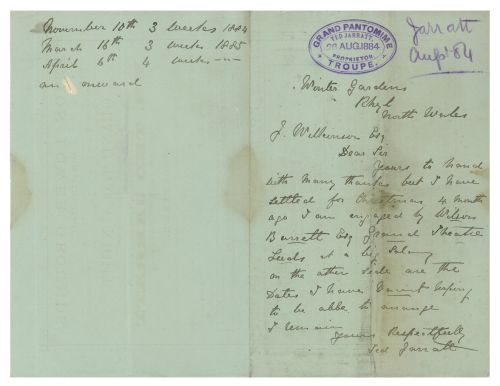 November 10th 3 weeks 1884
March 16th 3 weeks 1885
April 6th 4 weeks ---
an onward
GRAND PANTOMIME
TED JARRATT,
26 AUG.1884
PROPRIETOR.
TROUPE.
Jarratt
Augst 84
Winter Gardens
Rhyl
North Wales
J. Wilkinson Esq
Dear Sir
Yours to hand
with many thanks but I have
settled for Christmas 4 month
ago I am engaged by Wilson
Barrett Esq Grand Theatre
Leeds at a big Salary
on the other side are the
Dates I have Vacant hoping
to be abbe to arrange
I remain
Yours Respectfully
Ted Jarratt